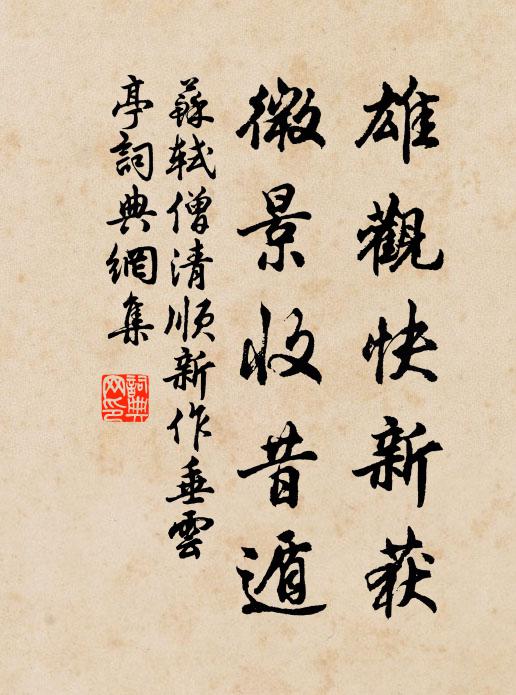 雄觀快新获
微景收昔遁
蘇軾僧清順新作垂雲
亭詞典網集
詞典
网印